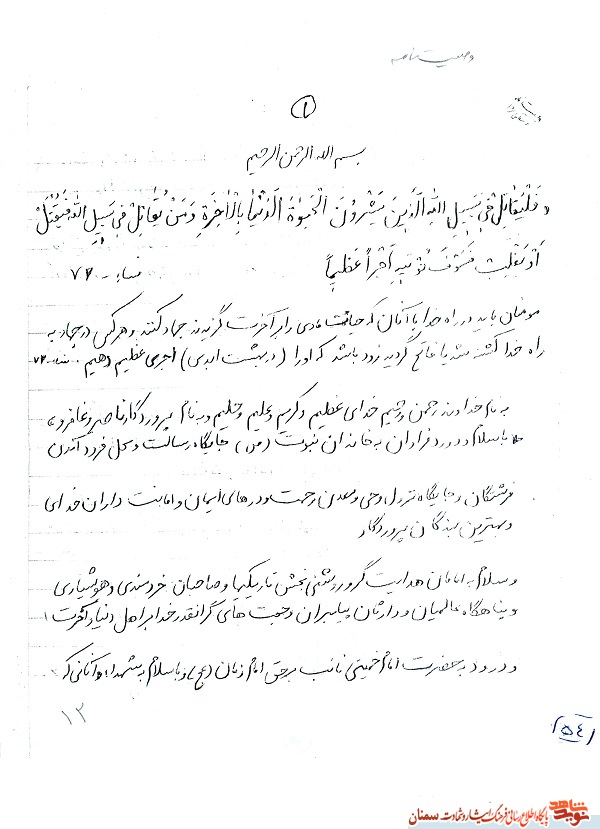 وصیت نامه
۱
بسم الله الرحمن الرحیم
« فَلْیُقاتِلْ فی سَبیلِ اللهِ الَّذینَ یَشْرُونَ الْحَیوةَ الدُّنْیا بِالْاخِرَةِ وَ مَنْ یُقاتِلْ فی سَبیلِ اللهِ فَیُقْتَلْ
اَوْ یَغْلِبْ فَسَوْفَ نُؤْتیهِ اَجْراً عَظیماً نساء - ۷۴
مومنان باید در راه خدا با آنان که حیات مادی را بر آخرت گزیدند جهاد کنند و هر کس در جهاد به
راه خدا کشته شد یا فاتح گردید زود باشد که او را (در بهشت ابدی) اجری عظیم دهیم نساء ۷۴
به نام خداوند رحمن و رحیم خدای عظیم و کریم و علیم و حلیم و به نام پروردگار ناصر و غافر و
با سلام و درود فراوان به خاندان نبوت (ص) جایگاه رسالت و محل فرود آمدن
فرشتگان و جایگاه نزول وحی و معدن رحمت و درهای ایمان و امانت داران خدای
و بهترین بندگان پروردگار
و سلام به امامان هدایت گر و روشنی بخش تاریکیها و صاحبان خردمندی و هوشیاری
و پناهگاه عالمیان و وارثان پیامبران و حجت های گرانقدر خدا بر اهل دنیا و آخرت
و درود به حضرت امام خمینی نائب برحق امام زمان (عج) و با سلام به شهداء و آنانی که
۱۲
۵۴۱
نوید شاهد
پایگاه اطلاع رسانی فرهنگ ایثار و شهادت سمنان